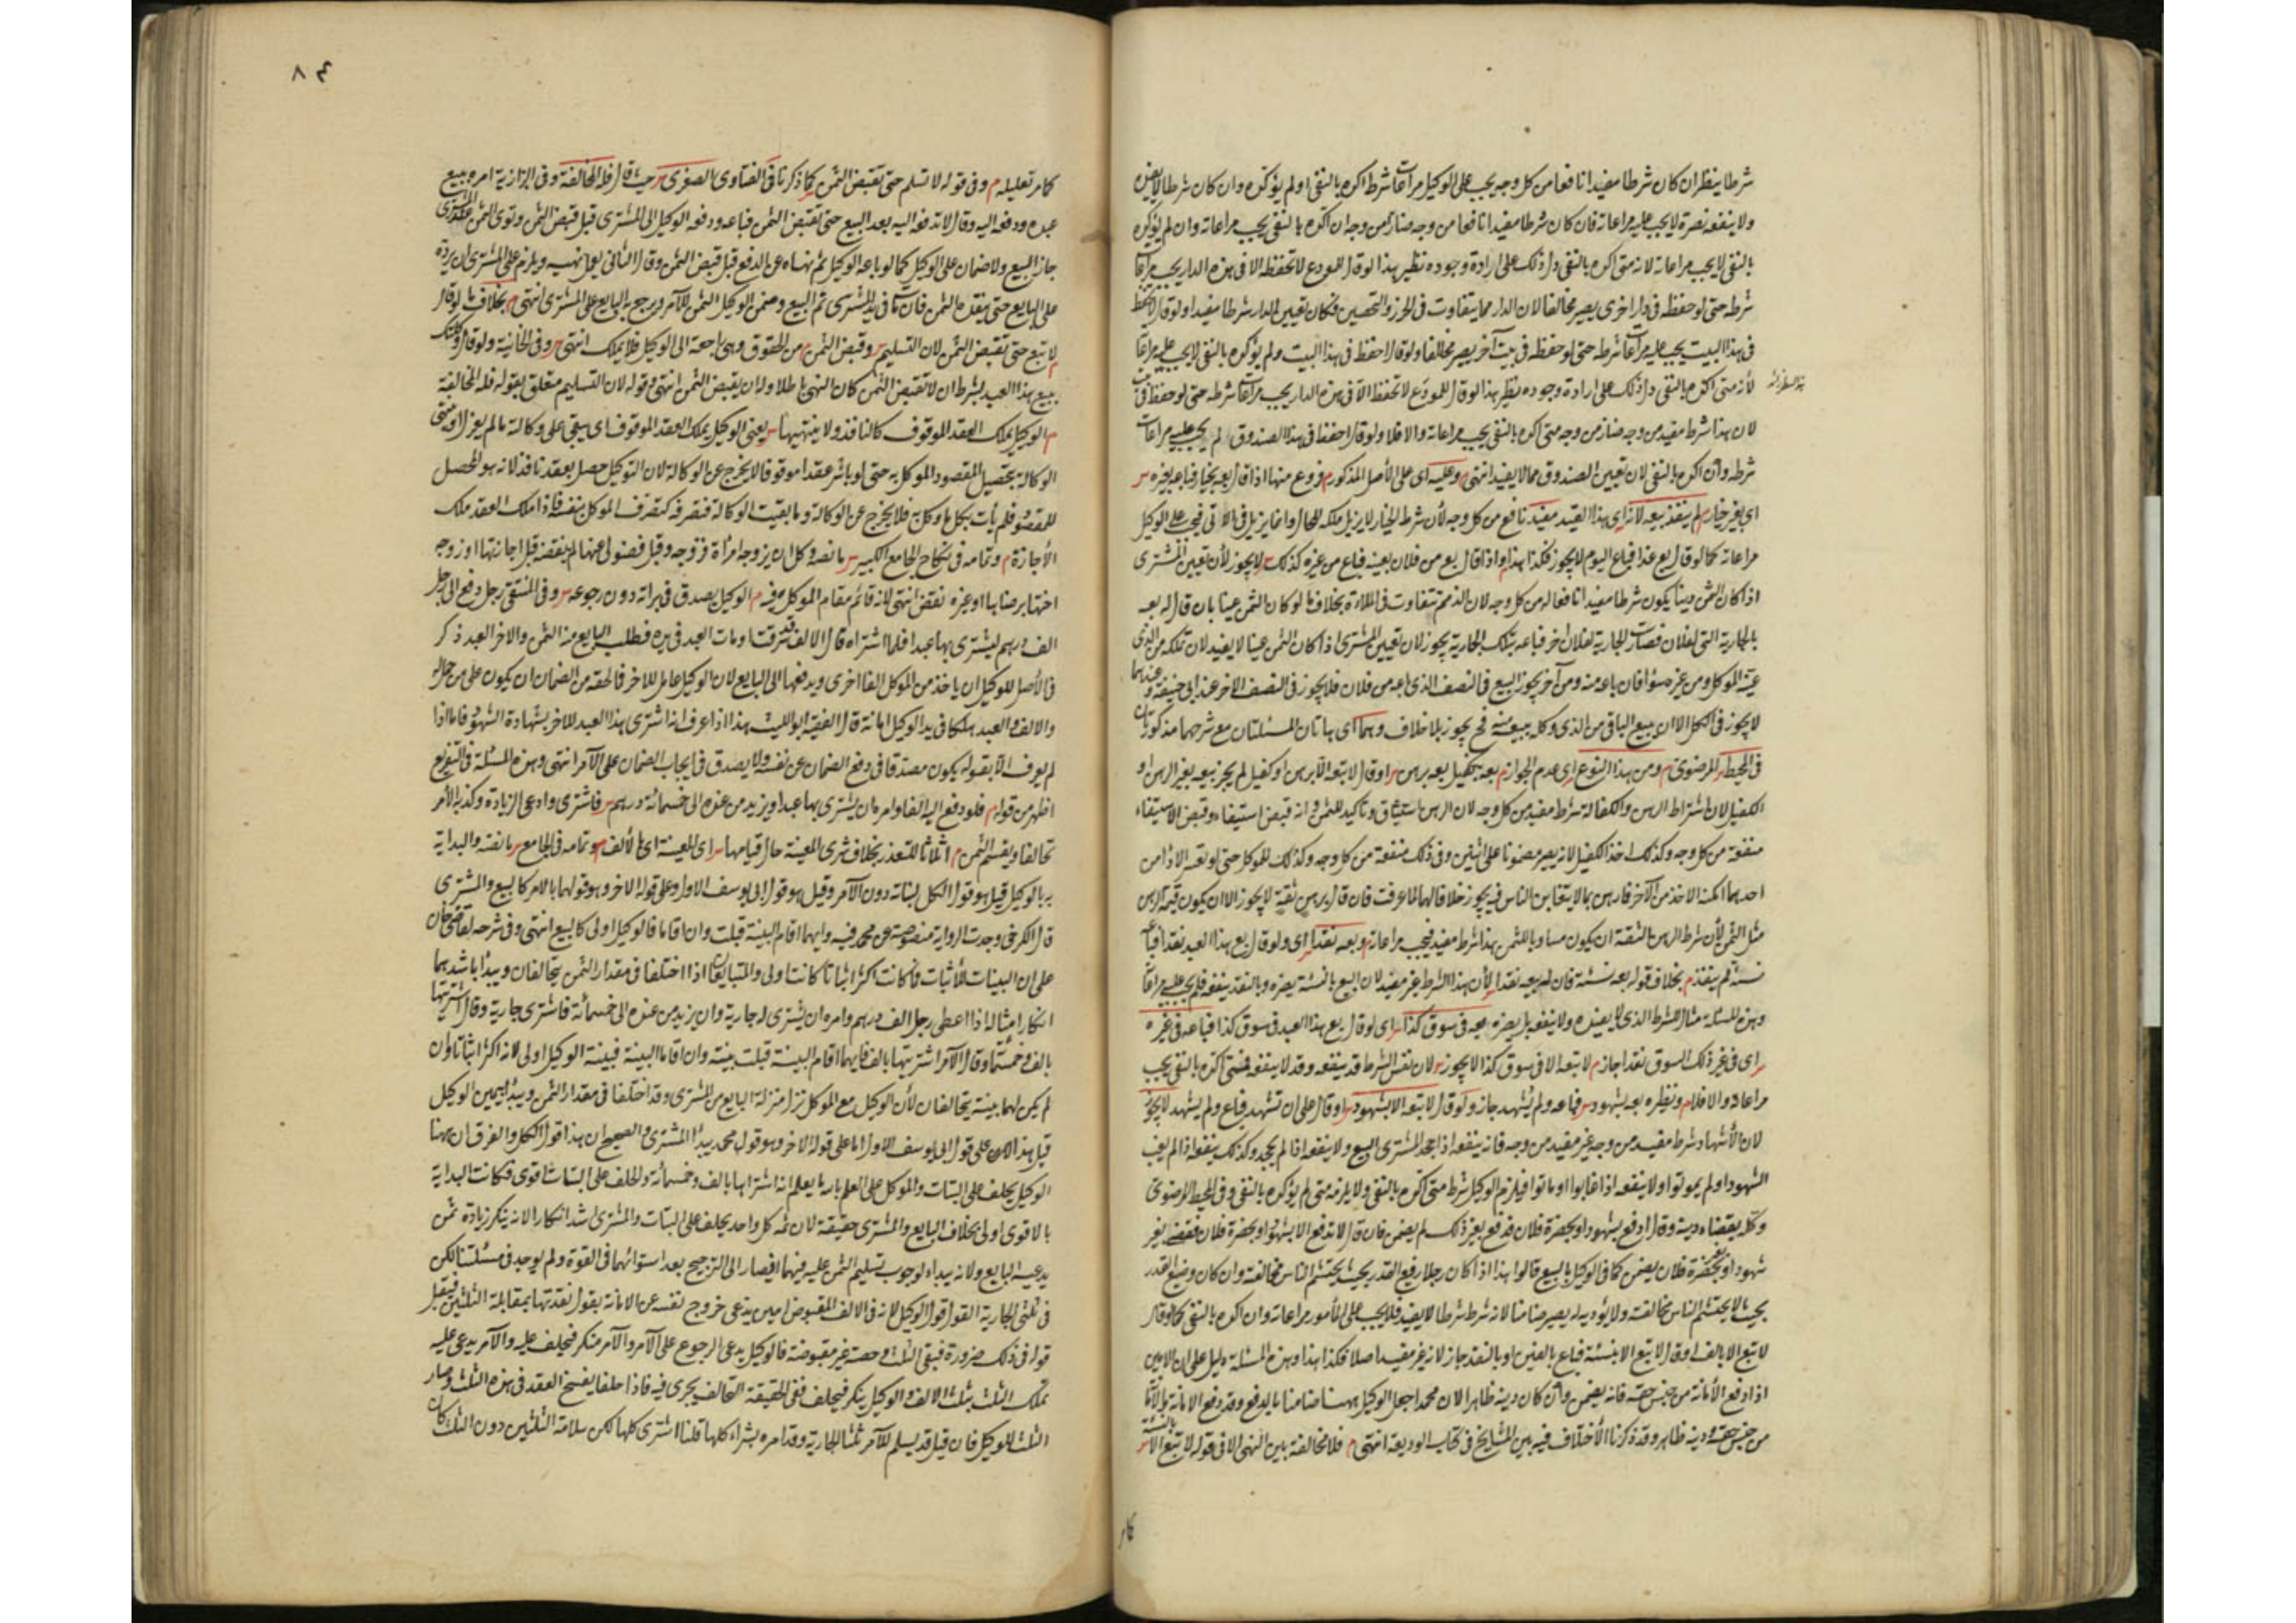 شرطا ينظر ان كان شرطا مفيدا نافعا من كل وجه يجب على الوكيل مراعاة شرطه اكده بالنفى او لم يؤكده وان كان شرطا لا يفيده
ولا ينفعه بل يضره لا يجب عليه مراعاته فان كان شرطا مفيدا نافعا من وجه ضارا من وجه ان اكده بالنفى يجب مراعاته وان لم يؤكده
بالنفى لا يجب مراعاته لانه متى اكده بالنفى دل ذلك على ارادة وجوده نظير هذا لو قال للمودع لا تحفظه الا فى هذه الدار يجب مراعاة
شرطه حتى لو حفظه فى دار اخرى يصير مخالفا لان الدار مما يتفاوت فى الحرز والتحصين فكان تعيين الدار شرطا مفيدا ولو قال لا تحفظ
فى هذا البيت يجب عليه مراعاة شرطه حتى لو حفظه فى بيت آخر يصير مخالفا ولو قال احفظ فى هذا البيت ولم يؤكده بالنفى لا يجب عليه مراعاة
لأنه متى اكده بالنفى دل ذلك على ارادة وجوده نظير هذا لو قال للمودع لا تحفظ الا فى هذه الدار يجب مراعاة شرطه حتى لو حفظ فى
لان هذا شرط مفيد من وجه ضار من وجه متى اكده بالنفى يجب مراعاته والا فلا ولو قال احفظ فى هذا الصندوق لم يجب عليه مراعاة
شرطه وان اكده بالنفى لان تعيين الصندوق مما لا يفيد انتهى وعليه اى على الأصل المذكور م فروع منها اذا قال بعه بخيار فباعه بغيره س
اى بغير خيار م لم ينفذ بيعه لانه اى هذا القيد مفيد نافع من كل وجه لأن شرط الخيار لا يزيل ملكه للحال وانما يزيل فى الآتى فيجب على الوكيل
مراعاته كما لو قال بع غدا فباع اليوم لا يجوز فكذا هذا م واذا قال بع من فلان بعينه فباع من غيره كذلك س لا يجوز لأن تعيين المشترى
اذا كان الثمن دينا يكون شرطا مفيدا نافعا له من كل وجه لان الذمم تتفاوت فى الملاءة بخلاف ما لو كان الثمن عينا بان قال له بعه
بالجارية التى لفلان فصارت الجارية لفلان اخر فباعه بتلك الجارية يجوز لان تعيين المشترى اذا كان الثمن عينا لا يفيد لان تملكه من الذى
عينه الموكل ومن غيره سواء فان باعه منه ومن آخر يجوز البيع فى النصف الذى باعه من فلان فلا يجوز فى النصف الاخر عند ابى حنيفة وعندهما
لا يجوز فى الكل الا ان يبيع الباقى من الذى وكله ببيعه منه فح يجوز بلا خلاف وهما اى هاتان المسئلتان مع شرحهما مذكورتان
فى المحيط س الرضوى م ومن هذا النوع اى عدم الجواز م بعه بكفيل بعه برهن س او قال لا تبعه الا برهن او كفيل لم يجز بيعه بغير الرهن او
الكفيل لان اشتراط الرهن والكفالة شرط مفيد من كل وجه لان الرهن استيثاق وتأكيد للثمن و انه قبض استيفاء وقبض الاستيفاء
منفعة من كل وجه وكذلك اخذ الكفيل لانه يصير مضمونا على اثنين وفى ذلك منفعة من كل وجه وكذلك للموكل حتى لو تعذر الاخذ من
احدهما امكنه الاخذ من الآخر فارهن بما لا يتغابن الناس فيه يجوز خلافا لهما لما عرفت فان قال برهن ثقة لا يجوز الا ان يكون قيمة الرهن
مثل الثمن لأن شرط الرهن الثقة ان يكون مساويا للثمن هذا شرط مفيد فيجب مراعاته م وبعه نقدا س اى ولو قال بع هذا العبد نقدا فباعه
نسئة لم ينفذ م بخلاف قوله بعه نسئة فان له بيعه نقدا لأن هذا الشرط غير مفيد لان البيع بالنسئة يضره وبالنقد ينفعه فلم يجب عليه مراعاة
وهذه المسئلة مثال الشرط الذى لا يفيده ولا ينفعه بل يضره م بعه فى سوق كذا س اى لو قال بع هذا العبد فى سوق كذا فباعه فى غيره
س اى فى غير ذلك السوق نقدا جاز م لا تبعه الا فى سوق كذا لا يجوز س لان نفس الشرط قد ينفعه وقد لا ينفعه فمتى اكده بالنفى يجب
مراعاته والا فلا م ونظيره بعه بشهود س فباعه ولم يشهد جاز ولو قال لا تبعه الا بشهود س او قال على ان تشهد فباع ولم يشهد لا يجوز
لان الأشهاد شرط مفيد من وجه غير مفيد من وجه فانه ينفعه اذا جحد المشترى البيع ولا ينفعه اذا لم يجحد وكذلك ينفعه اذا لم يغب
الشهود او لم يموتوا ولا ينفعه اذا غابوا او ماتوا فيلزم الوكيل شرطه متى اكده بالنفى ولا يلزمه متى لم يؤكده بالنفى وفى المحيط الرضوى
وكله بقضاء دينه وقال ادفع بشهود او بحضرة فلان فدفع بغير ذلك لم يضمن فان قال لا تدفع الا بشهود او بحضرة فلان فقضى بغير
شهود او بغير حضرة فلان يضمن كما فى الوكيل بالبيع قالوا هذا اذا كان رجلا رفيع القدر بحيث يحتشم الناس مخالفته وان كان وضيع القدر
بحيث لا يحتشم الناس مخالفته ولا يؤديه له يصير ضامنا لانه شرط شرطا لا يفيد فلا يجب على المأمور مراعاته وان اكده بالنفى كما لو قال
لا تبع الا بالف او قال لا تبع الا بنسئة فباع بالفين او بالنقد جاز لانه غير مفيد اصلا فكذا هذا وهذه المسئلة دليل على ان الامين
اذا دفع الأمانة من جنس حقه فانه يضمن وان كان دينه ظاهرا لان محمدا جعل الوكيل ههنا ضامنا بالدفع وقد دفع الامانة
من جنس حقه ودينه ظاهر وقد ذكرنا الأختلاف فيه بين المشايخ فى كتاب الوديعة انتهى م فلا مخالفة بين النهى الا فى قوله لا تبع الا بالنسئة س
كما مر
٨٤
كما مر تعليله م وفى قوله لا تسلم حتى تقبض الثمن كما ذكرنا فى الفتاوى الصغرى س حيث قال فله المخالفة وفى البزازية امره ببيع
عبده ودفعه اليه وقال لا تدفعه اليه بعد البيع حتى تقبض الثمن فباعه ودفعه الوكيل الى المشترى قبل قبض الثمن وتوى الثمن على المشترى
جاز البيع ولا ضمان على الوكيل كما لو باعه الوكيل ثم نهاه عن الدفع قبل قبض الثمن وقال الثانى يعمل نهيه ويلزم على المشترى ان يرده
على البايع حتى ينقد الثمن فان مات فى يد المشترى تم البيع وضمن الوكيل الثمن للآمر ورجع به البايع على المشترى انتهى م بخلاف ما لو قال
لا تبع حتى تقبض الثمن لان التسليم س وقبض الثمن م من الحقوق وهى راجعة الى الوكيل فلا يملك انتهى س وفى الخانية ولو قال وكلتك
ببيع هذا العبد بشرط ان لا تقبض الثمن كان النهى باطلا وله ان يقبض الثمن انتهى وقوله لان التسليم متعلق بقوله فله المخالفة
م الوكيل يملك العقد الموقوف كالنافذ ولا ينتهى بها س يعنى الوكيل يملك العقد الموقوف اى يبقى على وكالته ما لم يعزل او تنتهى
الوكالة بتحصيل المقصود الموكل به حتى لو باشر عقدا موقوفا لا يخرج عن الوكالة لان التوكيل حصل بعقد نافذ لانه هو المحصل
للمقصود فلم يأت بكل ما وكل به فلا يخرج عن الوكالة وما بقيت الوكالة فتصرفه كتصرف الموكل بنفسه فاذا ملك العقد ملك
الأجازة م وتمامه فى نكاح الجامع الكبير س ما نصه وكل ان يزوجه امرأة فزوجه وقبل فضولى عنها له نقضه قبل اجازتها او زوجه
اختها برضاها او غيره نقض انتهى لانه قائم مقام الموكل فيه م الوكيل يصدق فى براءته دون رجوعه س وفى المنتقى رجل دفع الى رجل
الف درهم ليشترى بها عبدا فلما اشتراه قال الالف قد سرقت او مات العبد فى يده فطلب البايع منه الثمن والاخر العبد ذكر
فى الأصل للوكيل ان يأخذ من الموكل الفا اخرى ويدفعها الى البايع لان الوكيل عامل للاخر فالحقه من الضمان ان يكون على من عمل له
والالف والعبد هلكا فى يد الوكيل امانة قال الفقيه ابو الليث هذا اذا عرف انه اشترى هذا العبد للاخر بشهادة الشهود فاما اذا
لم يعرف الا بقوله يكون مصدقا فى دفع الضمان عن نفسه ولا يصدق فى ايجاب الضمان على الآمر انتهى وهذه المسئلة فى التفريع
اظهر من قوله م فلو دفع اليه الفا وامره ان يشترى بها عبدا ويزيد من عنده الى خمسمائة درهم س فاشترى وادعى الزيادة وكذبه الآمر
تحالفا ويقسم الثمن م اثلاثا للتعذر بخلاف شرى المعينة حال قيامها س اى المعينة اى بالألف م وتمامه فى الجامع س ما نصه والبداية
بالوكيل قيل هو قول الكل لبتاته دون الآمر وقيل هو قول ابى يوسف الاول وعلى قوله الاخر وهو قولهما بالامر كالبيع والمشترى
قال الكرخى وجدت الرواية منصوصة عن محمد فيه وايهما اقام البينة قبلت وان اقاما فالوكيل اولى كالبيع انتهى وفى شرحه لقاضى خان
على ان البينات للأثبات فما كانت اكثر اثباتا كانت اولى والمتبايعان اذا اختلفا فى مقدار الثمن يتحالفان ويبدأ باشدهما
انكارا مثاله اذا اعطى رجل الف درهم وامره ان يشترى له جارية وان يزيد من عنده الى خمسمائة فاشترى جارية وقال اشتريتها
بالف وخمسمائة وقال الآمر اشتريتها بالف فايهما اقام البينة قبلت بينته وان اقاما البينة فبينة الوكيل اولى لانه اكثر اثباتا وان
لم يكن لهما بينة يتحالفان لأن الوكيل مع الموكل نزلا منزلة البايع من المشترى وقد اختلفا فى مقدار الثمن ويبدأ بيمين الوكيل
قيل هذا على قول ابى يوسف الاول اما على قوله الاخر وهو قول محمد يبدأ المشترى والصحيح ان هذا قول الكل والفرق ان هنا
الوكيل يحلف على البتات والموكل على العلم بالله ما يعلم انه اشتراها بالف وخمسمائة والحلف على البتات اقوى فكانت البداية
بالاقوى اولى بخلاف البايع والمشترى حقيقة لان ثمه كل واحد يحلف على البتات والمشترى اشد انكارا لانه ينكر زيادة ثمن
يدعيه البايع ولانه يبداء لوجوب تسليم الثمن عليه فيهما فيصار الى الترجيح بعد استوائهما فى القوة ولم يوجد فى مسئلتنا لكن
فى ثلثى الجارية القول قول الوكيل لانه فى الالف المقبوض امين يدعى خروج نفسه عن الامانة بقوله نقدتها بمقابلة الثلثين فيقبل
قوله فى ذلك ضرورة فبقى الثلث حصته غير مقبوضة فالوكيل يدعى الرجوع على الآمر والآمر منكر فيحلف عليه والآمر يدعى عليه
تملك الثلث بثلث الالف والوكيل ينكر فيحلف ففى الحقيقة التحالف يجرى فيه فاذا حلفا يفسخ العقد فى هذه الثلث وصار
الثلث للوكيل فان قيل قد يسلم للآمر ثلثا الجارية وقد امره بشراء كلها قلنا اشترى كلها لكن سلامة الثلثين دون الثلث كان